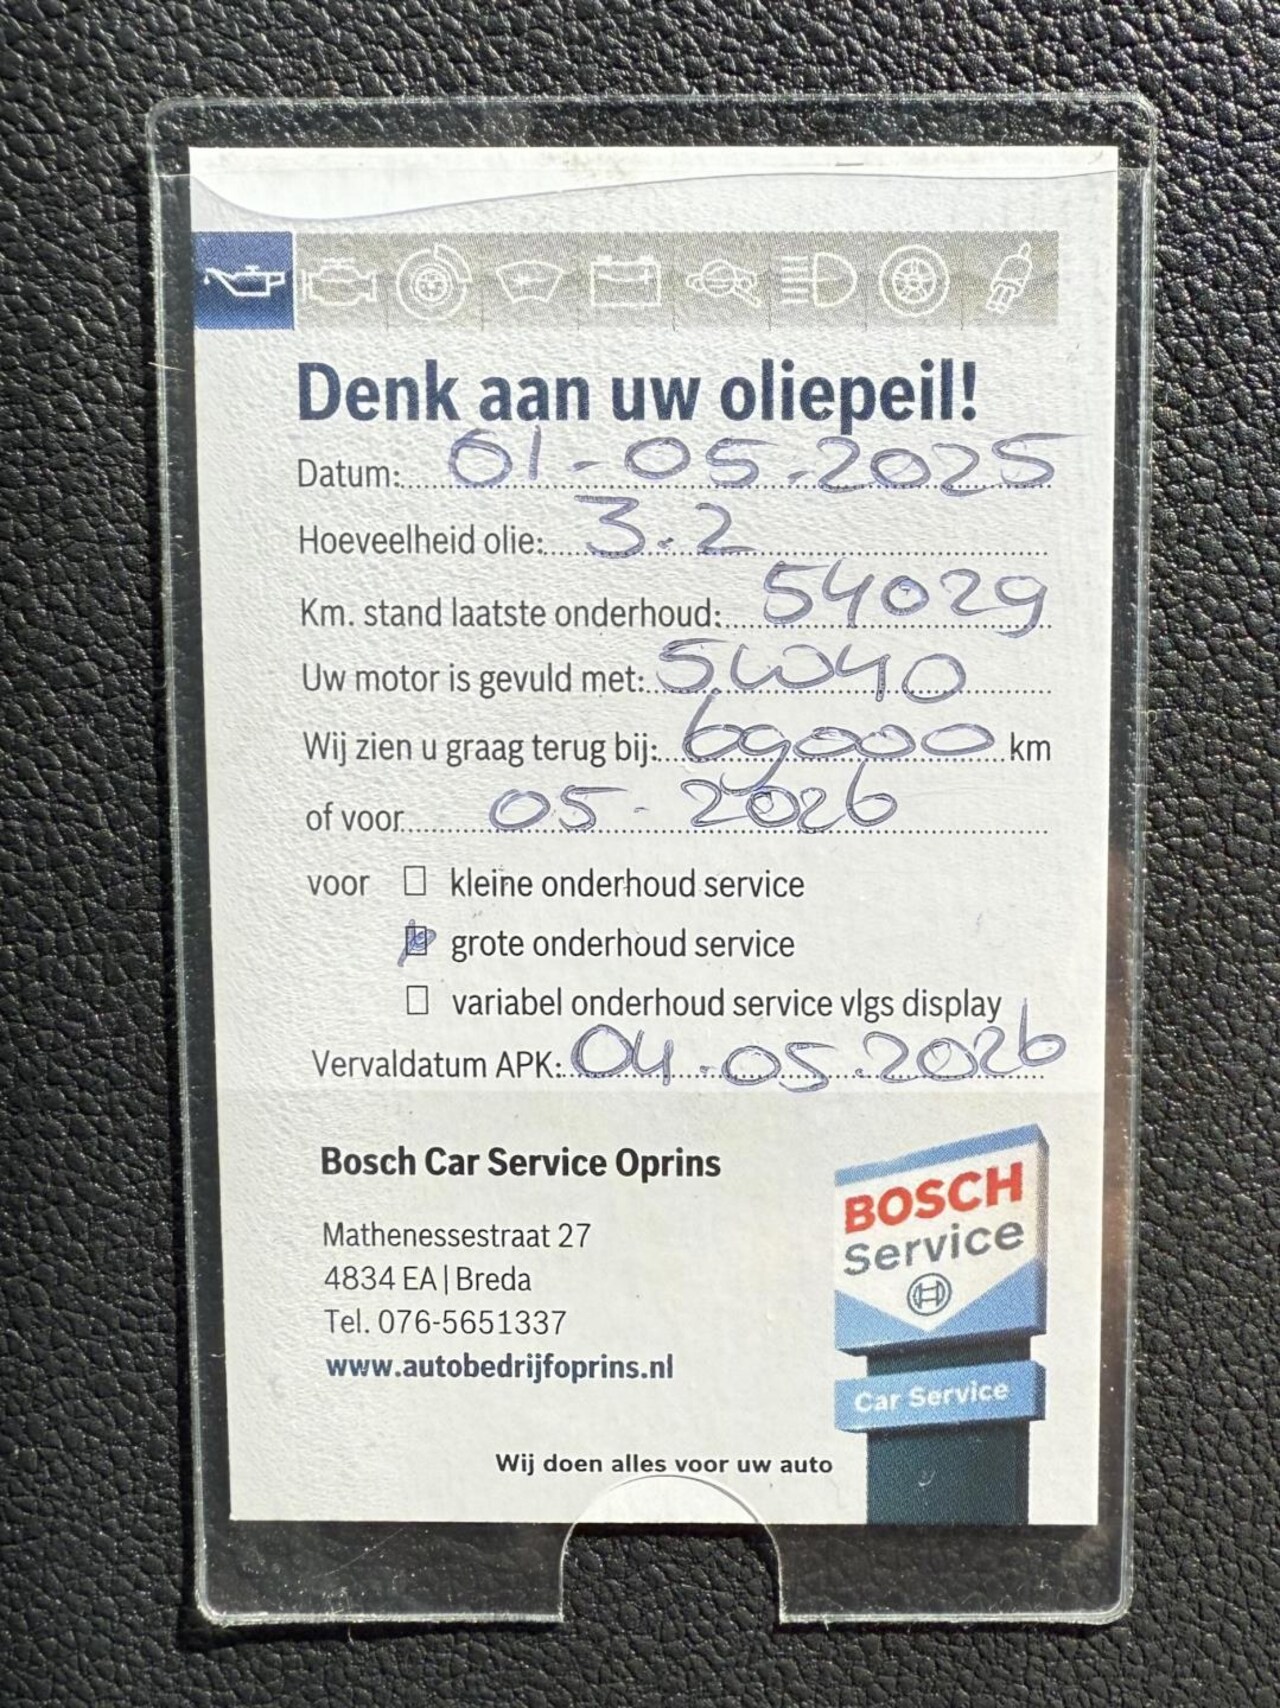 Denk aan uw oliepeil!
Datum: 01-05-2025
Hoeveelheid olie: 3.2
Km. stand laatste onderhoud: 54029
Uw motor is gevuld met: 5W40
Wij zien u graag terug bij: 69000 km
of voor 05-2026
voor kleine onderhoud service
grote onderhoud service
variabel onderhoud service vlgs display
Vervaldatum APK: 04-05.2026
Bosch Car Service Oprins
Mathenessestraat 27
4834 EA | Breda
Tel. 076-5651337
www.autobedrijfoprins.nl
BOSCH
Service
Car Service
Wij doen alles voor uw auto